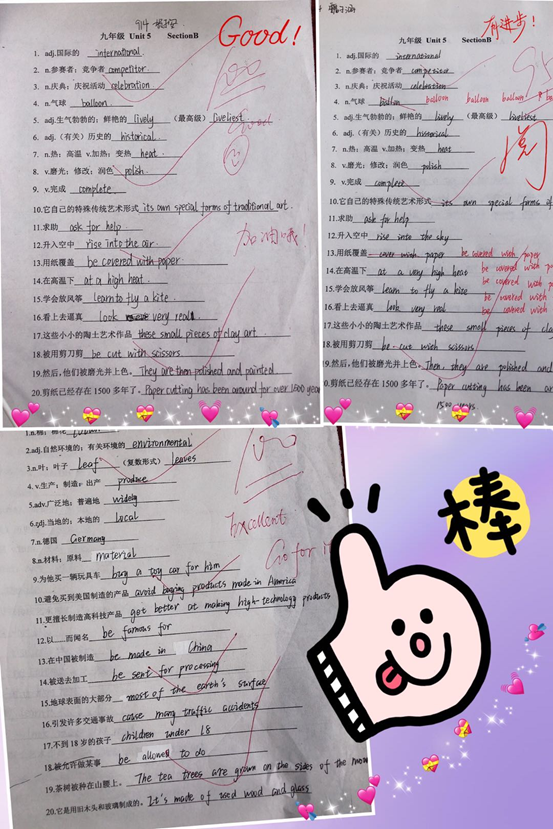 Good!
九年级 Unit 5 SectionB
100
1. adj.国际的 international.
2. n.参赛者；竞争者 competitor
3. n.庆典；庆祝活动 celebration
4. n.气球 balloon
5. adj.生气勃勃的；鲜艳的 lively （最高级） liveliest
6. adj.（有关）历史的 historical.
7. n.热；高温 v.加热；变热 heat
8. v.磨光；修改；润色 polish
9. v.完成 complete
10.它自己的特殊传统艺术形式 its own special forms of traditional art.
11.求助 ask for help
12.升入空中 rise into the air
13.用纸覆盖 be covered with paper
14.在高温下 at a high heat.
15.学会放风筝 learn to fly a kite.
16.看上去逼真 look very real
17.这些小小的陶土艺术作品 these small pieces of clay art
18.被用剪刀剪 be cut with scissors
19.然后，他们被磨光并上色。They are then polished and painted
20.剪纸已经存在 1500 多年了。Paper cutting has been around for over 1500 years
加油哦！
有进步！
九年级 Unit 5 SectionB
1. adj.国际的 international
2. n.参赛者；竞争者
3. n.庆典；庆祝活动 celebration
4. n.气球 balloon balloon balloon
5. adj.生气勃勃的；鲜艳的 lively （最高级） liveliest
6. adj.（有关）历史的 historical
7. n.热；高温 v.加热；变热 heat
8. v.磨光；修改；润色 polish
9. v.完成 complete
10.它自己的特殊传统艺术形式 its own special forms of
11.求助 ask for help
12.升入空中 rise into the sky
13.用纸覆盖 cover with paper be covered with paper
14.在高温下 at a very high heat be covered with paper
15.学会放风筝 learn to fly a kite be covered with paper
16.看上去逼真 look very real be covered with
17.这些小小的陶土艺术作品 these small pieces of clay
18.被用剪刀剪 be cut with scissors
19.然后，他们被磨光并上色。Then, they are polished and
0.剪纸已经存在 1500 多年了。Paper cutting has been ar
阅
2.adj.自然环境的；有关环境的 environmental
3.n.叶；叶子 leaf （复数形式） leaves
4. v.生产；制造；出产 produce
5.adv.广泛地；普遍地 widely
6.adj.当地的；本地的 local
7.n.德国 Germany
8.n.材料；原料 material
9.为他买一辆玩具车 buy a toy car for him
10.避免买到美国制造的产品 avoid buying products made in America
11.更擅长制造高科技产品 get better at making high-technology products
12.以……而闻名 be famous for
13.在中国被制造 be made in China
14.被送去加工 be sent for processing
15.地球表面的大部分 most of the earth's surface
16.引发许多交通事故 cause many traffic accidents
17.不到 18 岁的孩子 children under 18
18.被允许做某事 be allowed to do
19.茶树被种在山腰上。The tea trees are grown on the sides of the mou
20.它是用旧木头和玻璃制成的。It's made of used wood and glass
100
Excellent
Go for
棒